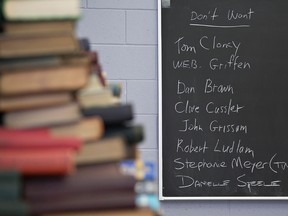 Don't Want
Tom Clancy
W.E.B. Griffen
Dan Brown
Clive Cussler
John Grissom
Robert Ludlum
Stephanie Meyer (Tom
Danielle Steele